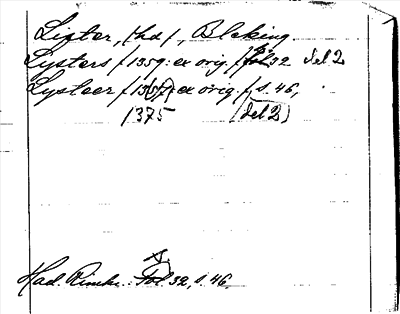 Lister, hd, Bleking.
Lysters f 1359: ex orig. f. 32 del 2
Lysteer f 1367: ex orig. f. s. 46,
1375 (del 2)
Had. Rimkr.: Fol. 32, s. 46.